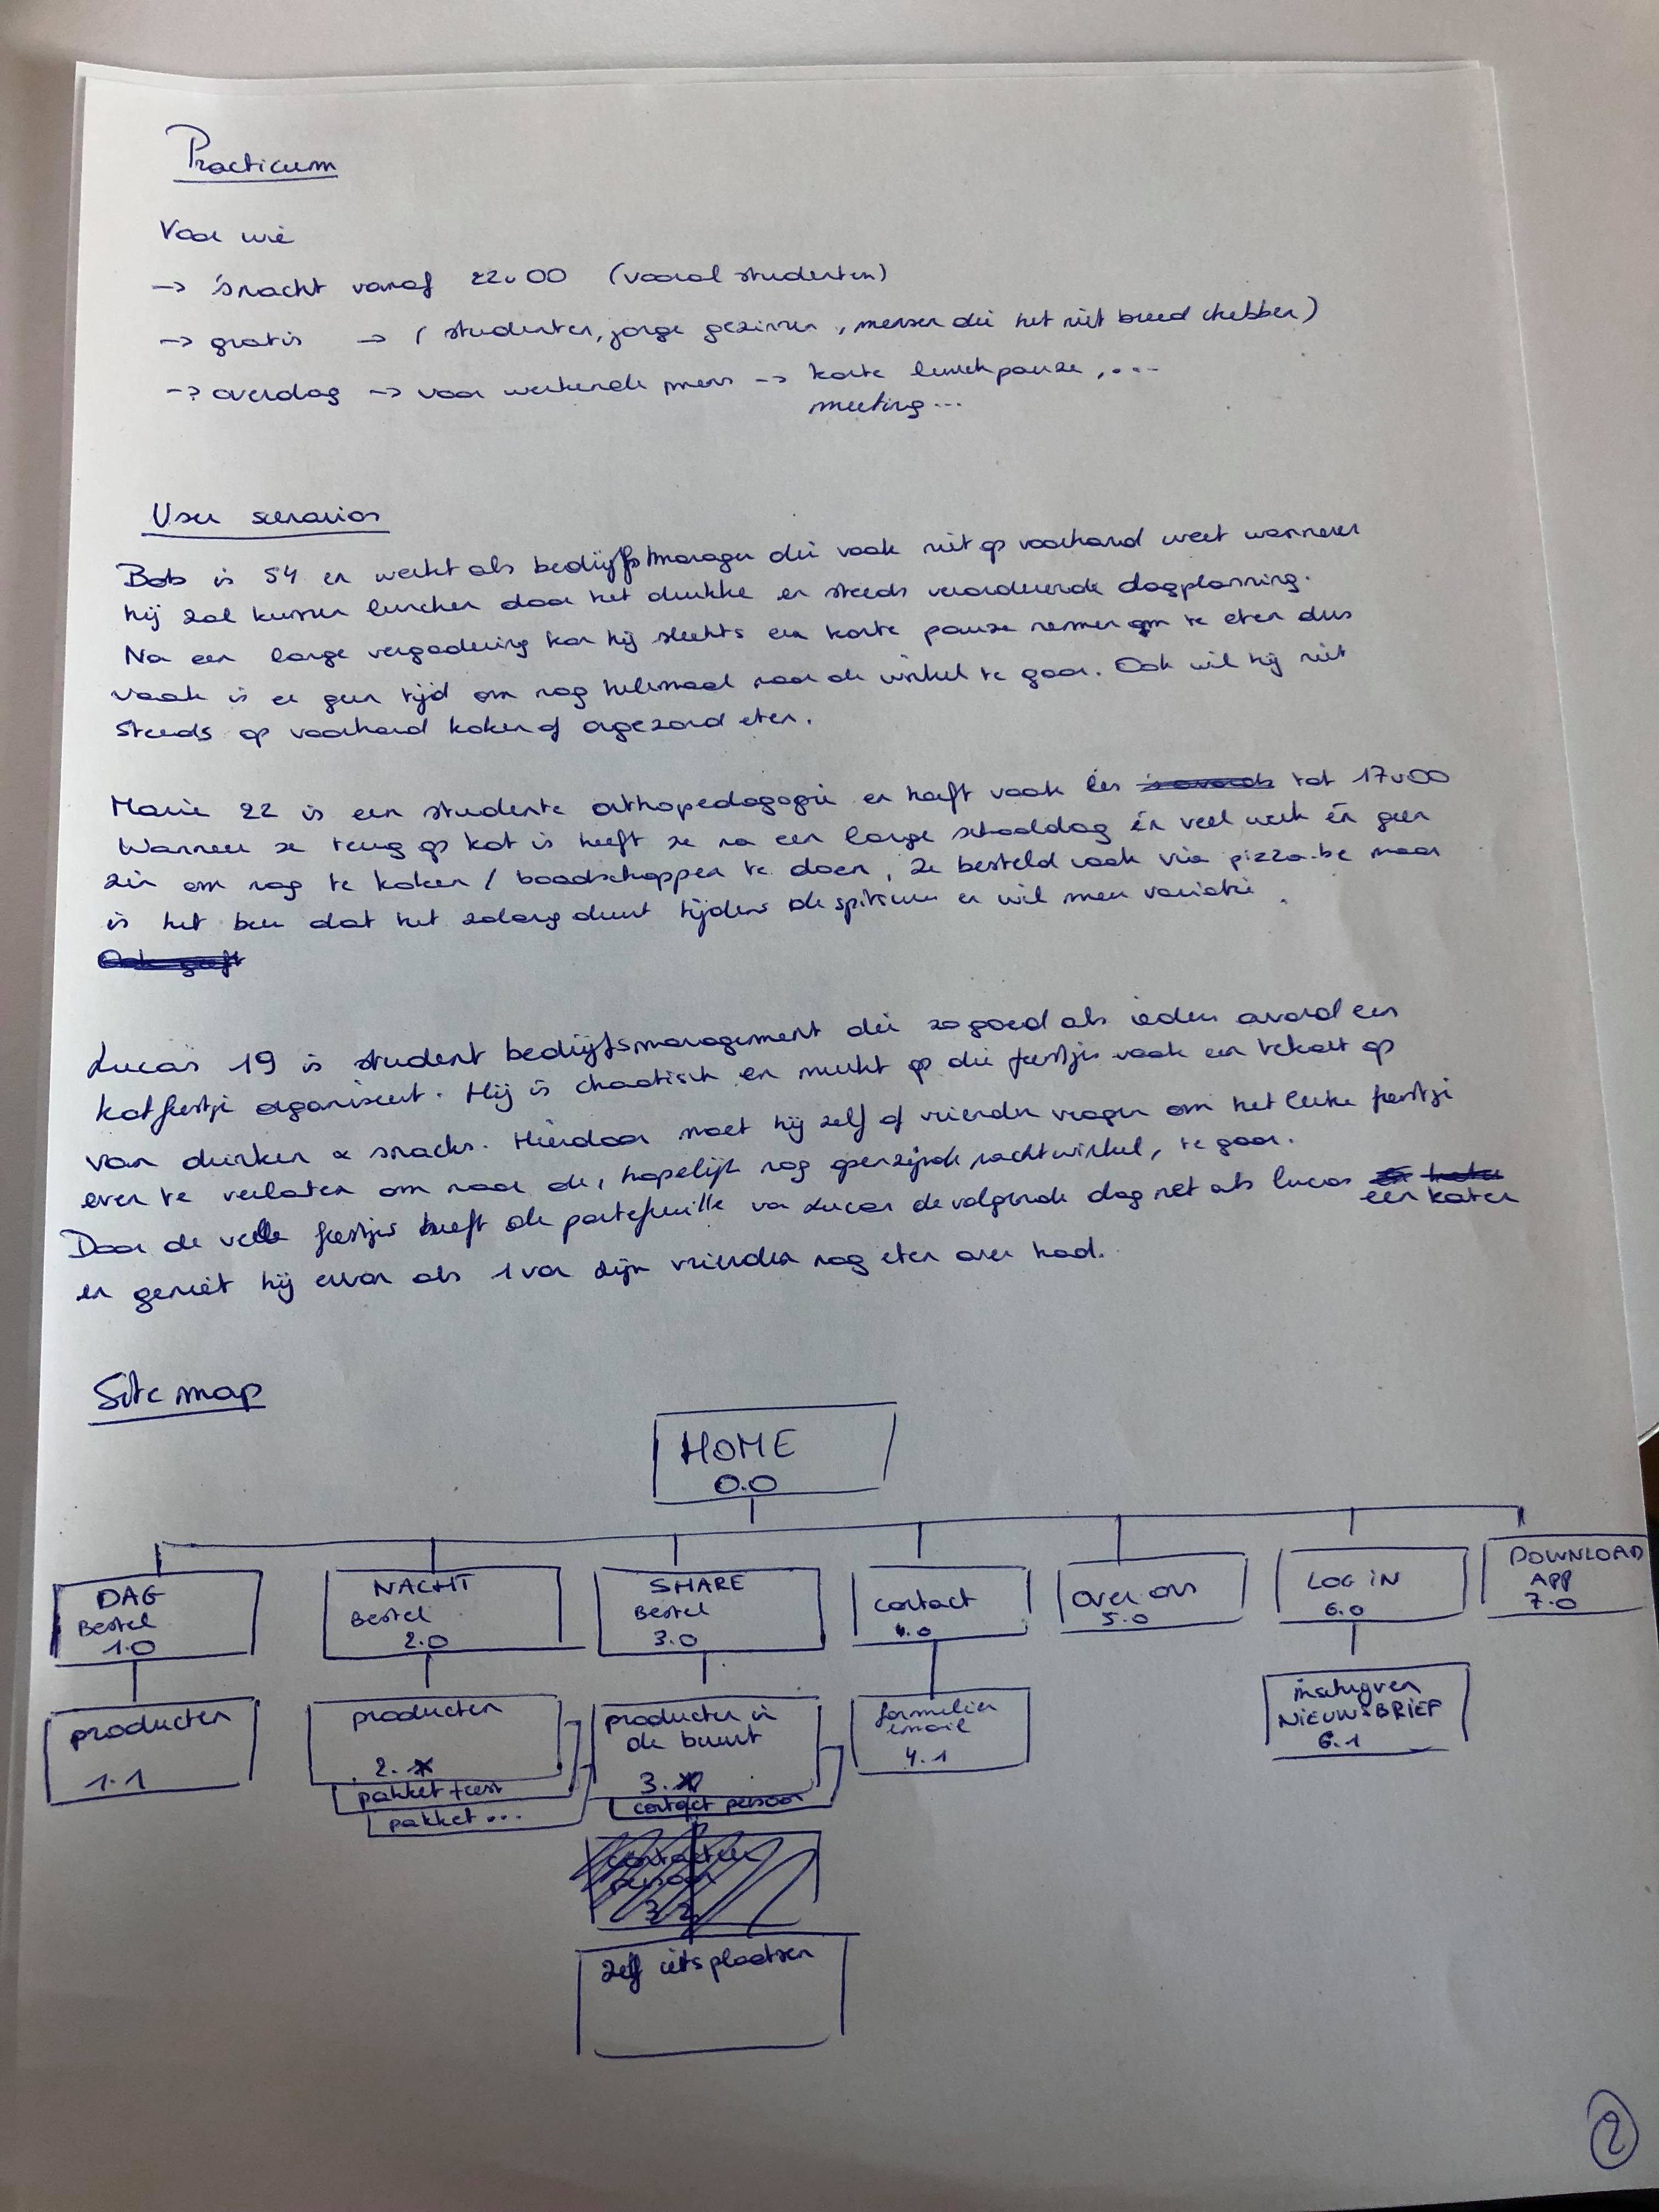 Practicum
Voor wie
→ 'snacht vanaf 22u00 (vooral studenten)
→ gratis → (studenten, jonge gezinnen, mensen die het niet breed hebben)
→ overdag → voor werkende mens → korte lunchpauze, ....
meeting...
User scenarios
Bob is 54 en werkt als bedrijfsmanager die vaak niet op voorhand weet wanneer
hij zal kunnen lunchen door het drukke en steeds veranderende dagplanning.
Na een lange vergadering kan hij slechts een korte pauze nemen om te eten dus
vaak is er geen tijd om nog helemaal naar de winkel te gaan. Ook wil hij niet
steeds op voorhand koken of ongezond eten.
Marie 22 is een studente orthopedagogie en heeft vaak les 's avonds tot 17u00
Wanneer ze terug op kot is heeft ze na een lange schooldag én veel werk én geen
zin om nog te koken / boodschappen te doen, ze besteld vaak via pizza.be maar
is het beu dat het zolang duurt tijdens de spitsuur en wil meer variatie.
Ook geeft
Lucas 19 is student bedrijfsmanagement die zogoed als iedere avond een
kotfeestje organiseert. Hij is chaotisch en merkt op die feestjes vaak een tekort op
van drinken & snacks. Hierdoor moet hij zelf of vrienden vragen om het leuke feestje
even te verlaten om naar de, hopelijk nog openzijnde nachtwinkel, te gaan.
Door de vele feestjes heeft de portefeuille van Lucas de volgende dag net als lucas een kater
en geniet hij ervan als 1 van zijn vrienden nog eten over had.
Site map
HOME
0.0
DAG
Bestel
1.0
NACHT
Bestel
2.0
SHARE
Bestel
3.0
contact
4.0
over ons
5.0
LOG iN
6.0
DOWNLOAD
APP
7.0
producten
1.1
producten
2.*
pakket feest
pakket ...
producten in
de buurt
3.*
contact persoon
formulier
email
4.1
inschrijven
NIEUWSBRIEF
6.1
contacteer
persoon
3.2
zelf iets plaatsen
2